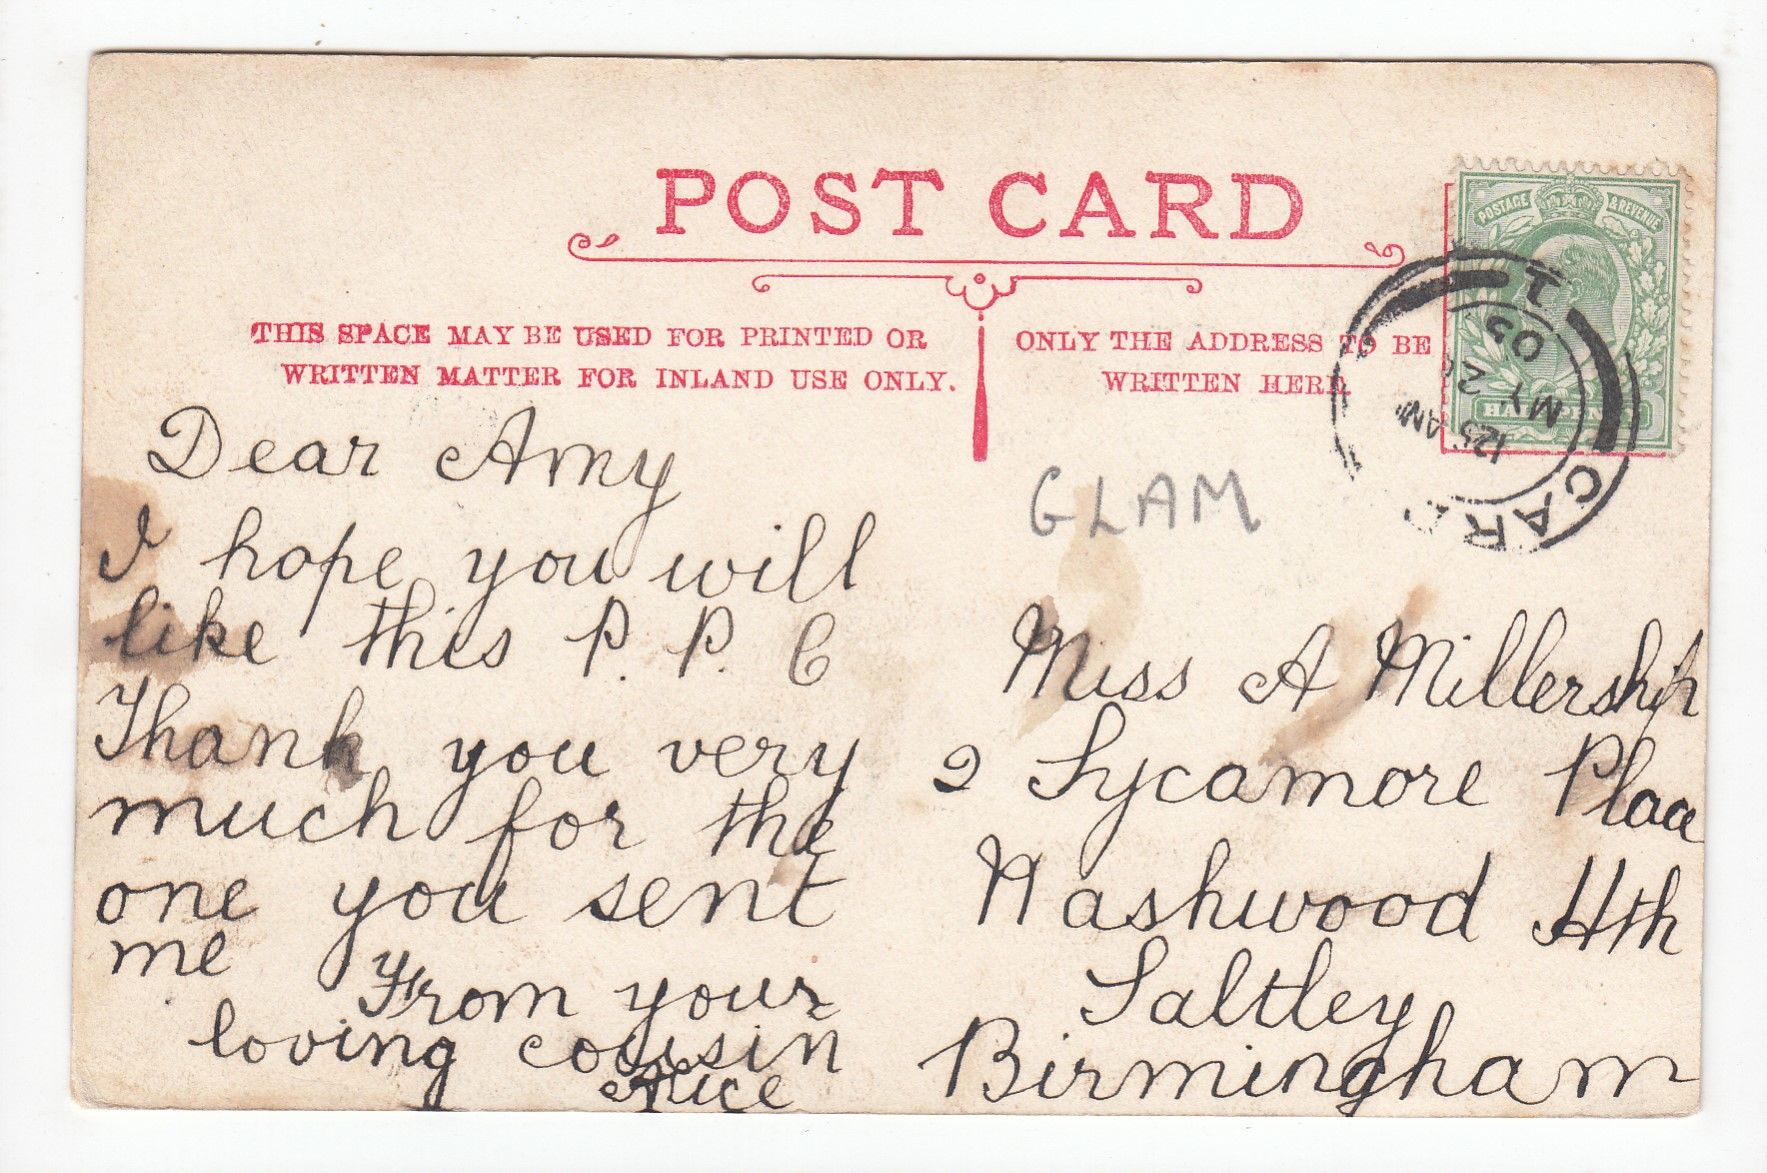 POST CARD
THIS SPACE MAY BE USED FOR PRINTED OR
WRITTEN MATTER FOR INLAND USE ONLY.
ONLY THE ADDRESS TO BE
WRITTEN HERE
POSTAGE & REVENUE
05
MY 2
1 25 AM
CARD
GLAM
Dear Amy
I hope you will
like this P. P. C
Thank you very
much for the
one you sent
me
From your
loving cousin
Alice
Miss A Millership
2 Sycamore Place
Washwood Hth
Saltley
Birmingham